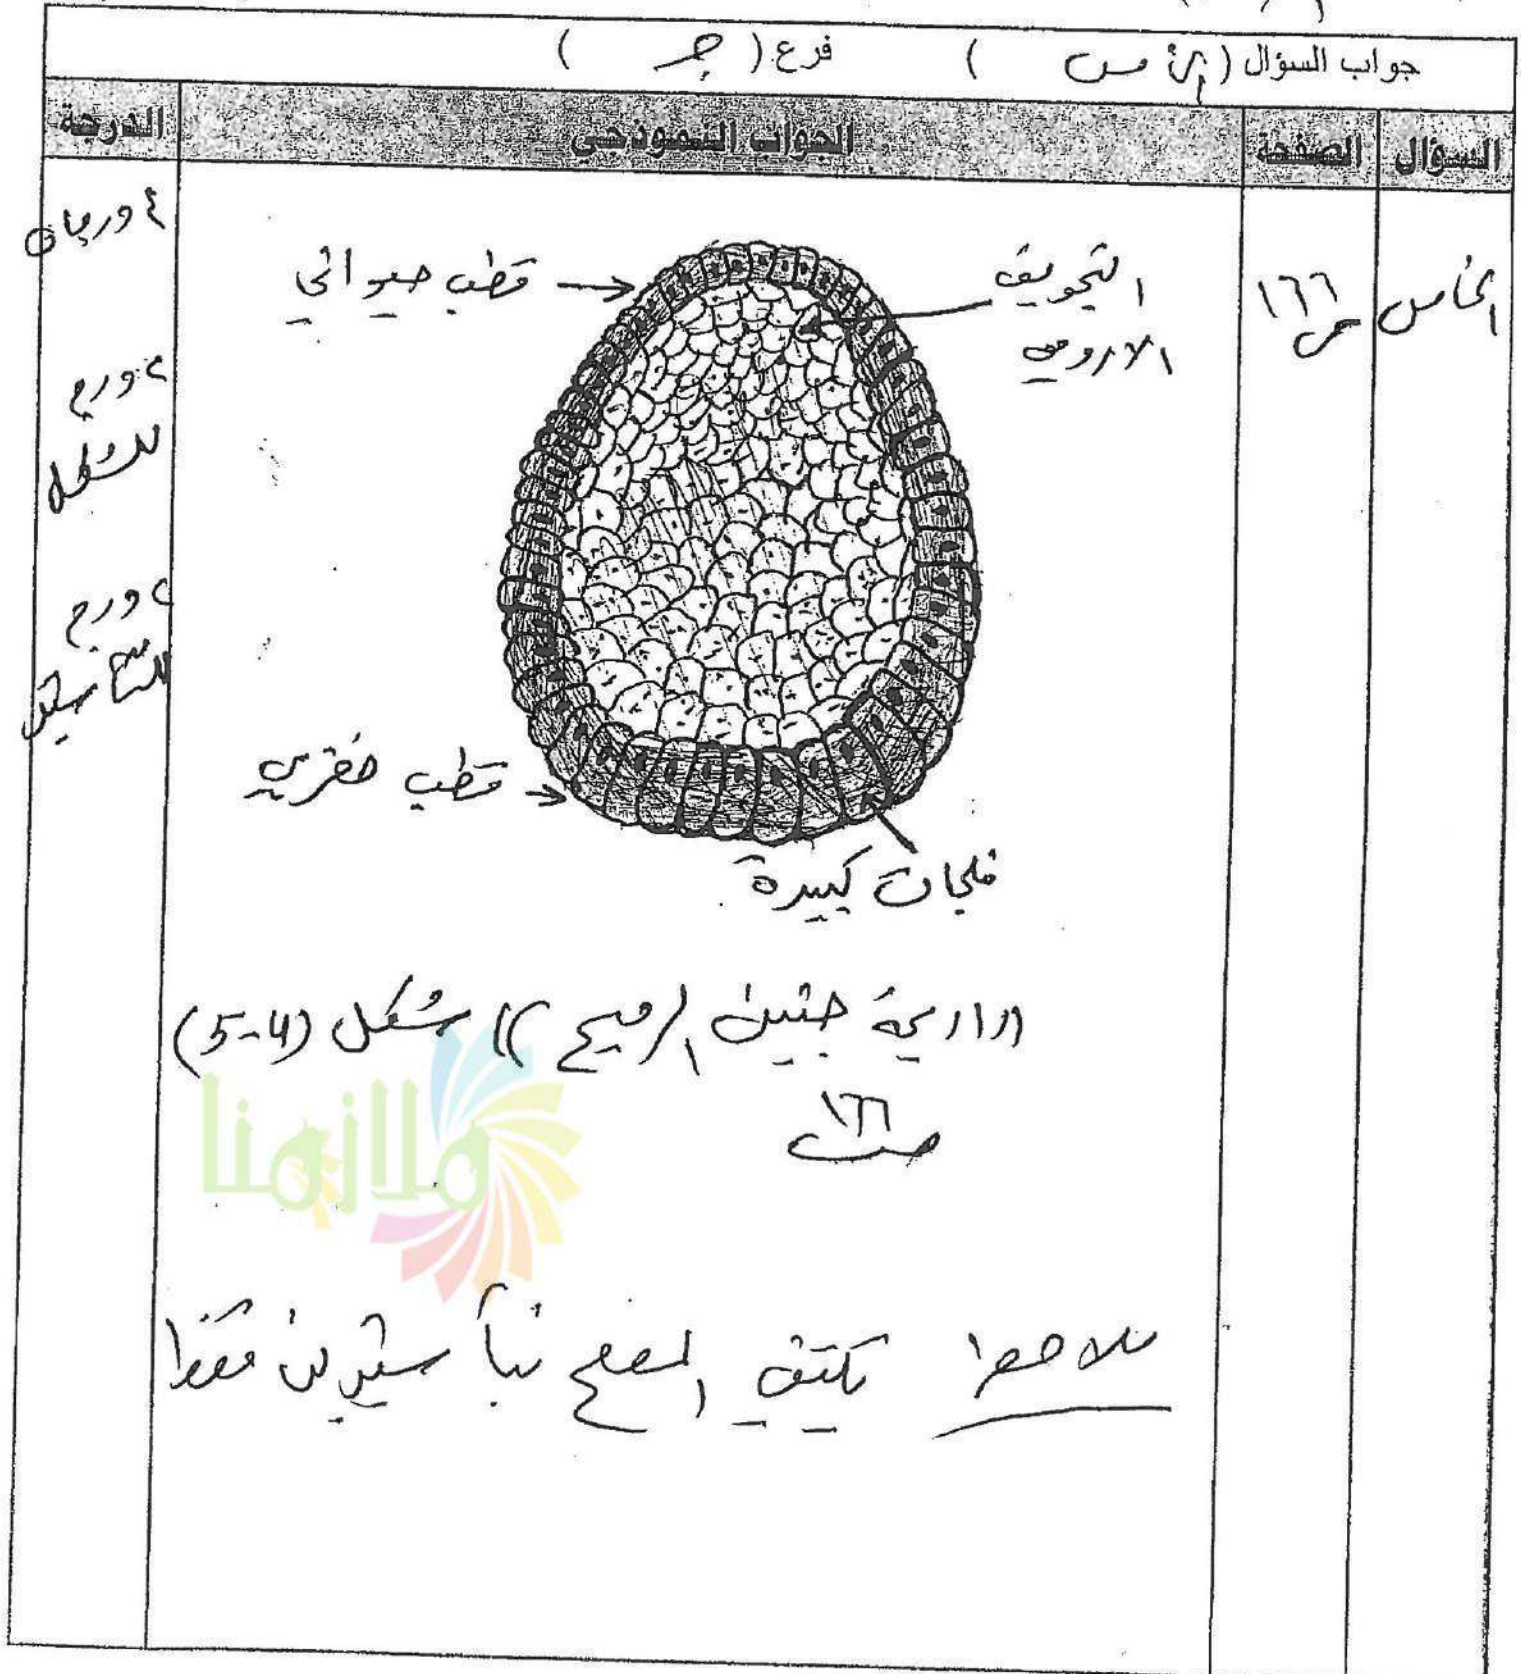 جواب السؤال ( الخامس ) فرع ( جـ )
السؤال الصفحة الجواب النموذجي الدرجة
الخامس
ص ١٦٦
التجويف
الارومي
قطب حيواني
قطب خضري
فلجات كبيرة
((اريمة جنين الرميح)) شكل (4-5)
ص ١٦٦
ملازمنا
ملاحظة يكتفي المصحح بتأشيرين فقط
٤ درجات
٢ درجة
للشكل
٢ درجة
للتأشير